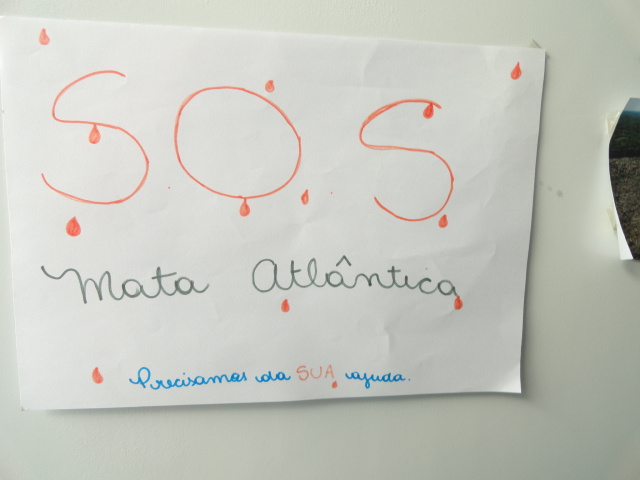 SOS
Mata Atlântica
Precisamos da SUA ajuda.